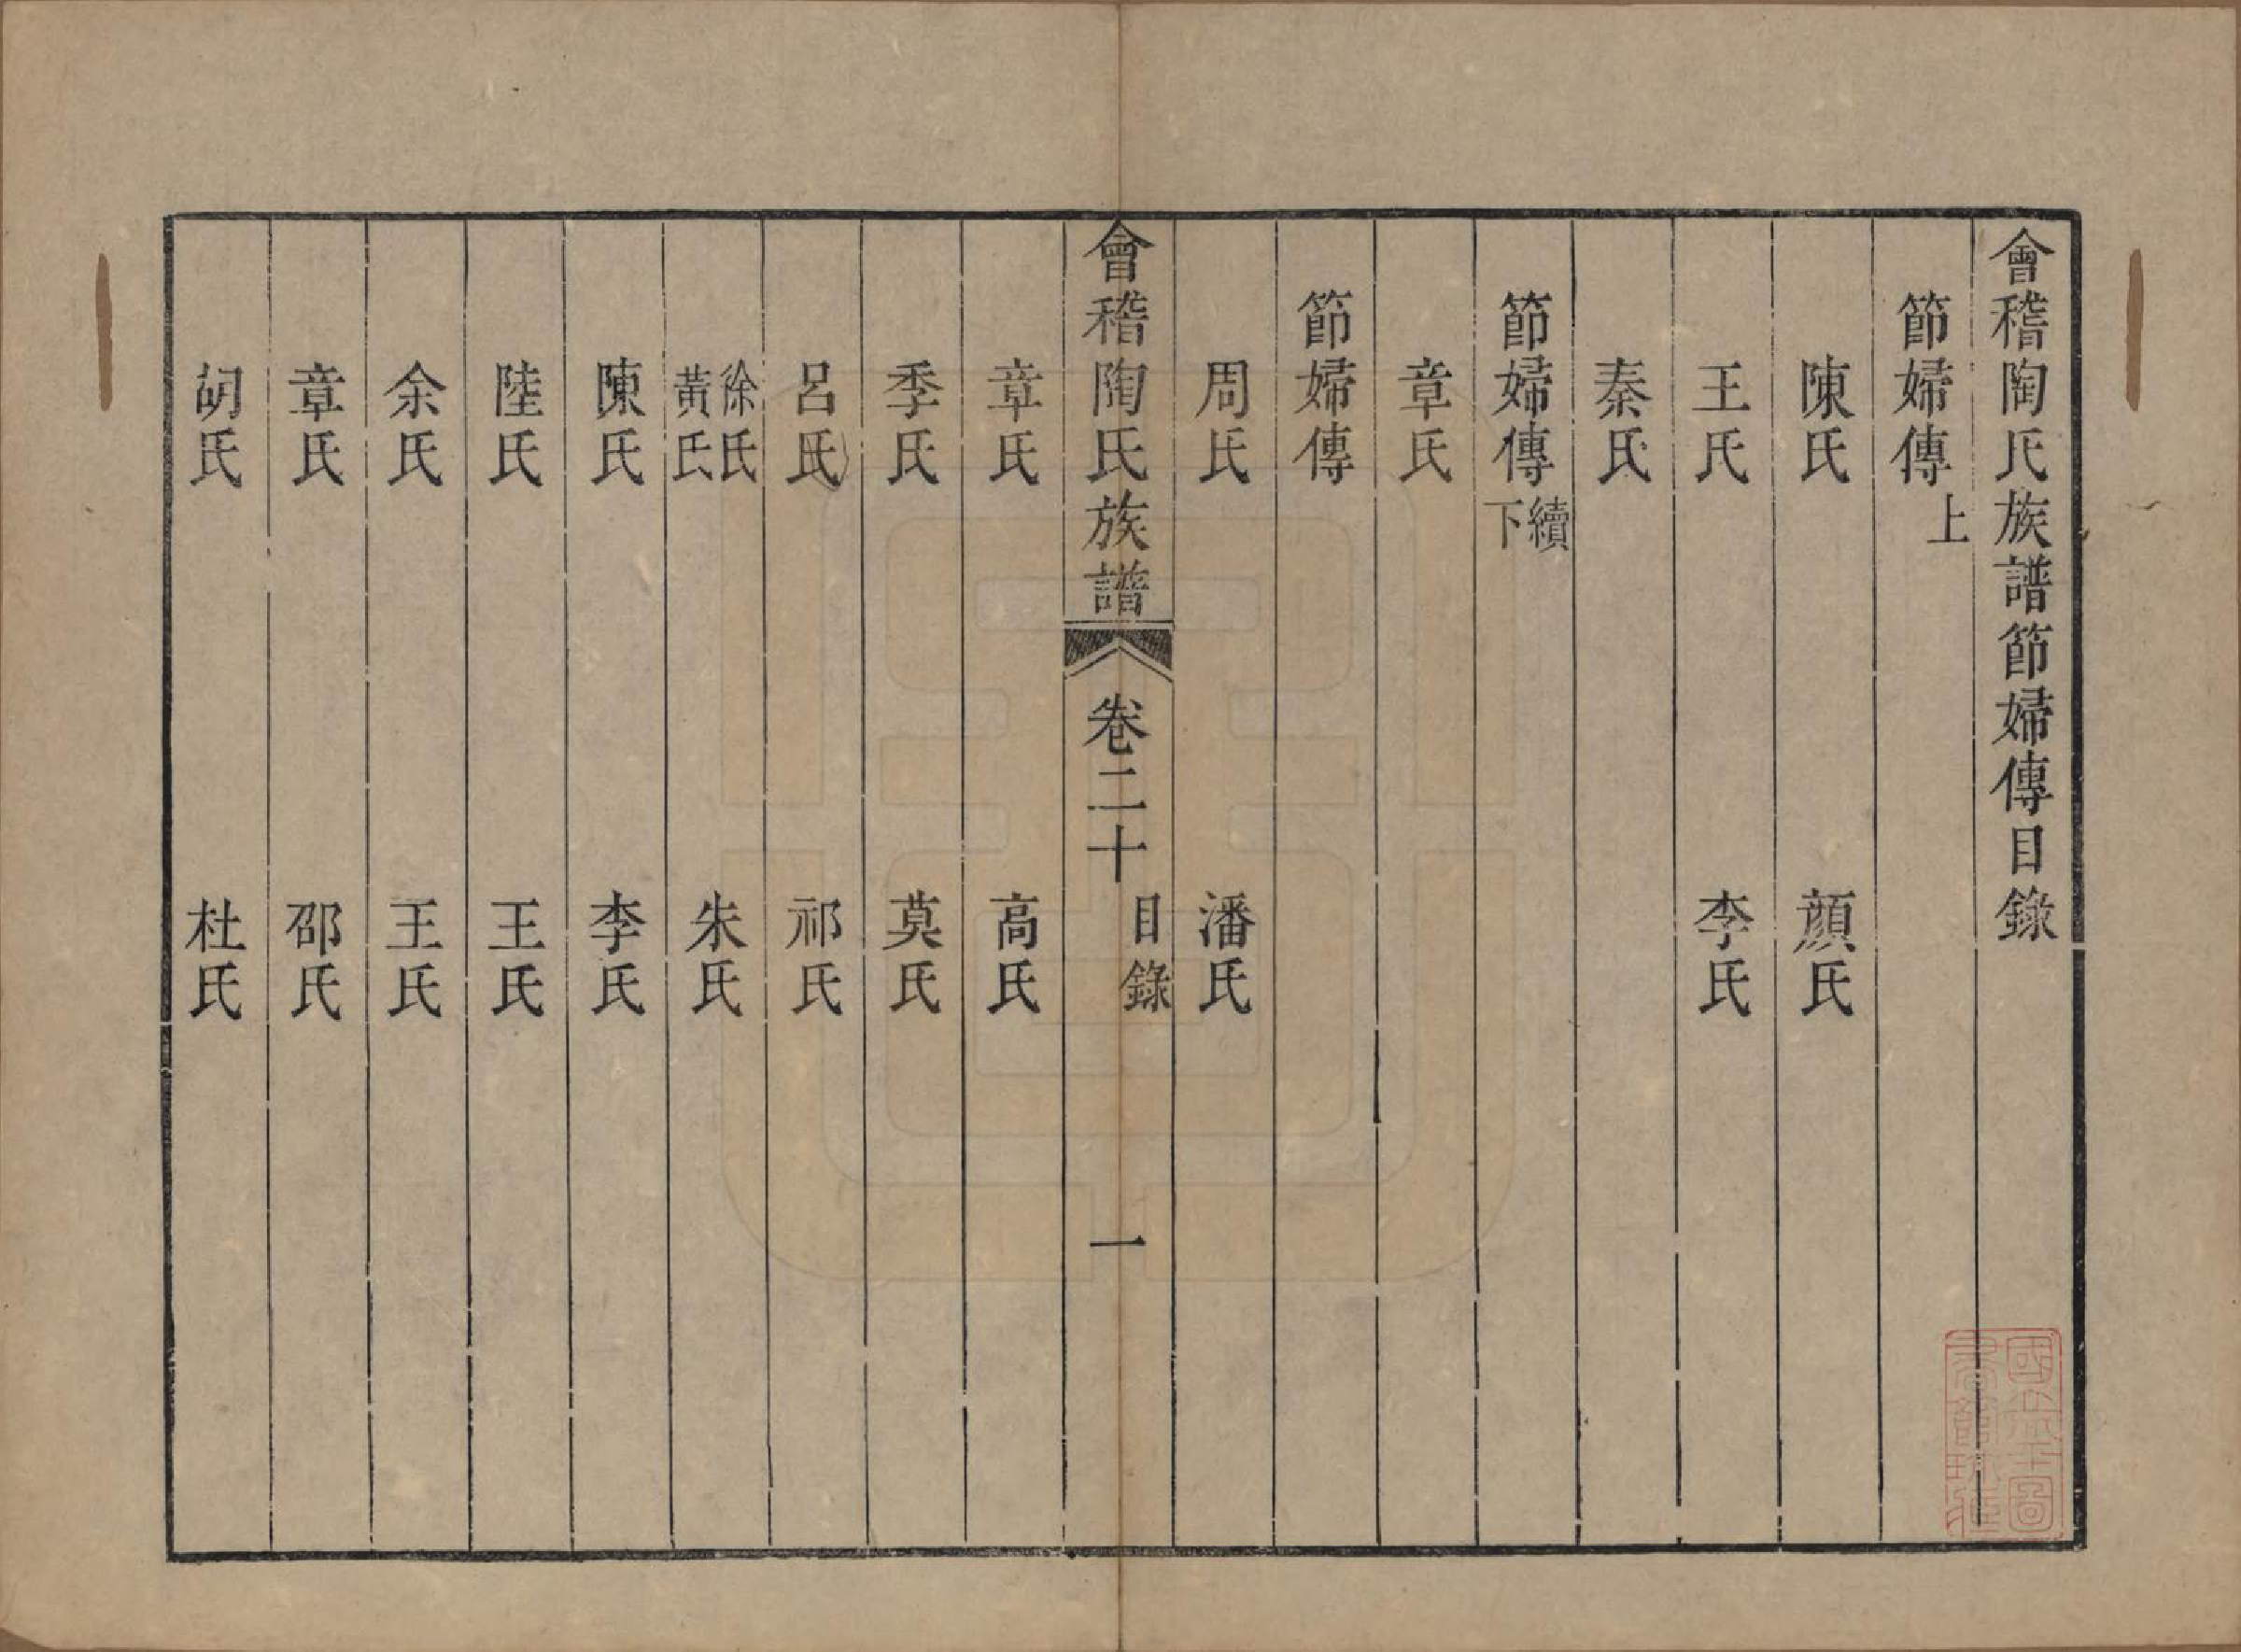 會稽陶氏族譜節婦傳目錄
節婦傳上
陳氏 顔氏
王氏 李氏
秦氏
節婦傳續下
章氏
節婦傳
周氏 潘氏
會稽陶氏族譜 卷二十 目錄 一
章氏 高氏
季氏 莫氏
呂氏 祁氏
徐氏黃氏 朱氏
陳氏 李氏
陸氏 王氏
余氏 王氏
章氏 邵氏
胡氏 杜氏
國立北平圖書館珍藏